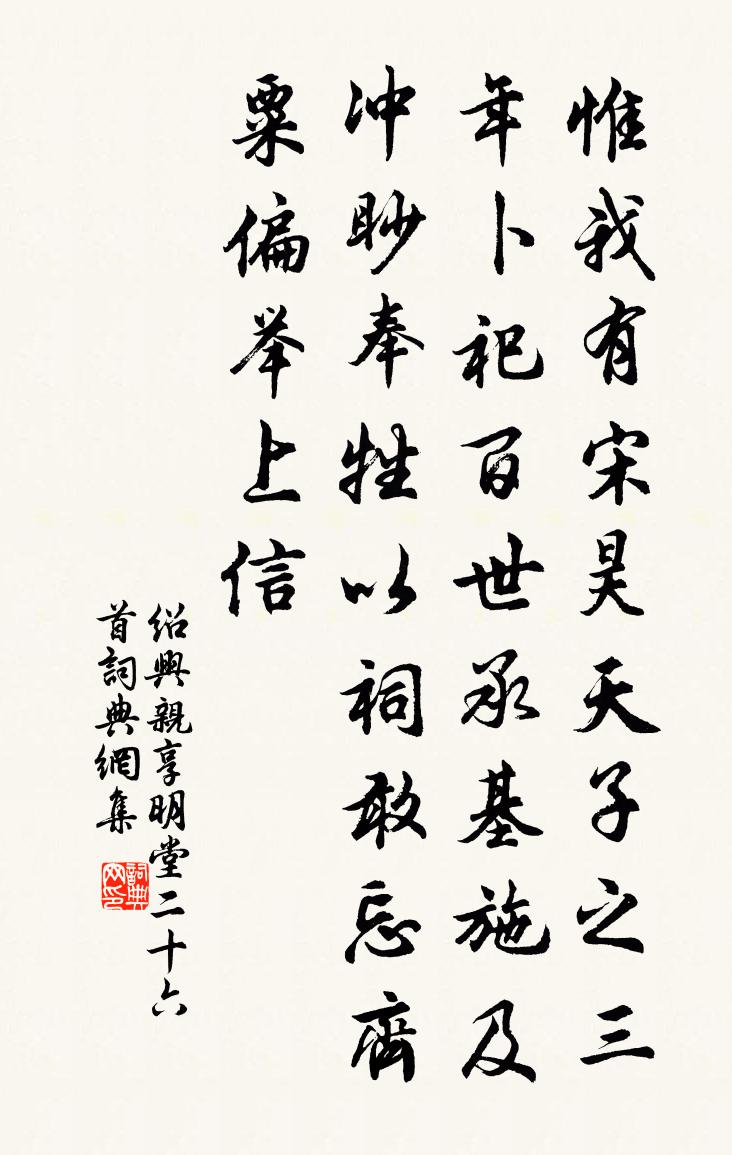 惟我有宋昊天子之三
年卜祀百世承基施及
冲眇奉牲以祠敢忘齊
粟偏举上信
绍興親享明堂二十六
首詞典網集
詞典
网印